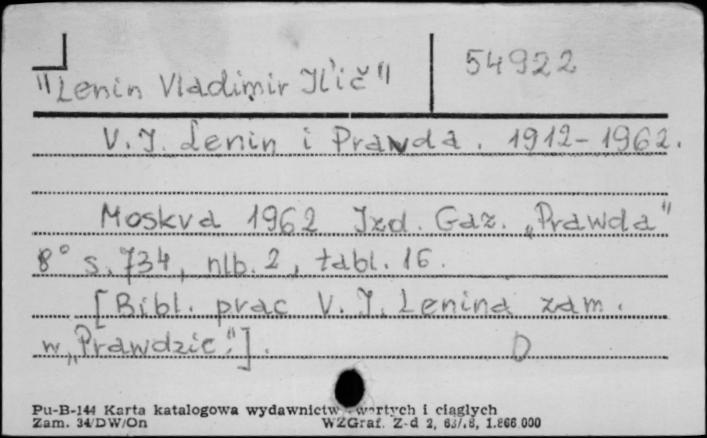 54922
"Lenin Vladimir Il'ič"
V. I. Lenin i Prawda. 1912-1962.
Moskva 1962 Izd. Gaz. „Prawda"
8° s. 734, nlb. 2, tabl. 16.
[Bibl. prac V. I. Lenina zam.
w „Prawdzie".].
D
Pu-B-144 Karta katalogowa wydawnictw zwartych i ciągłych
Zam. 34/DW/On WZGraf. Z-d 2, 1.866.000